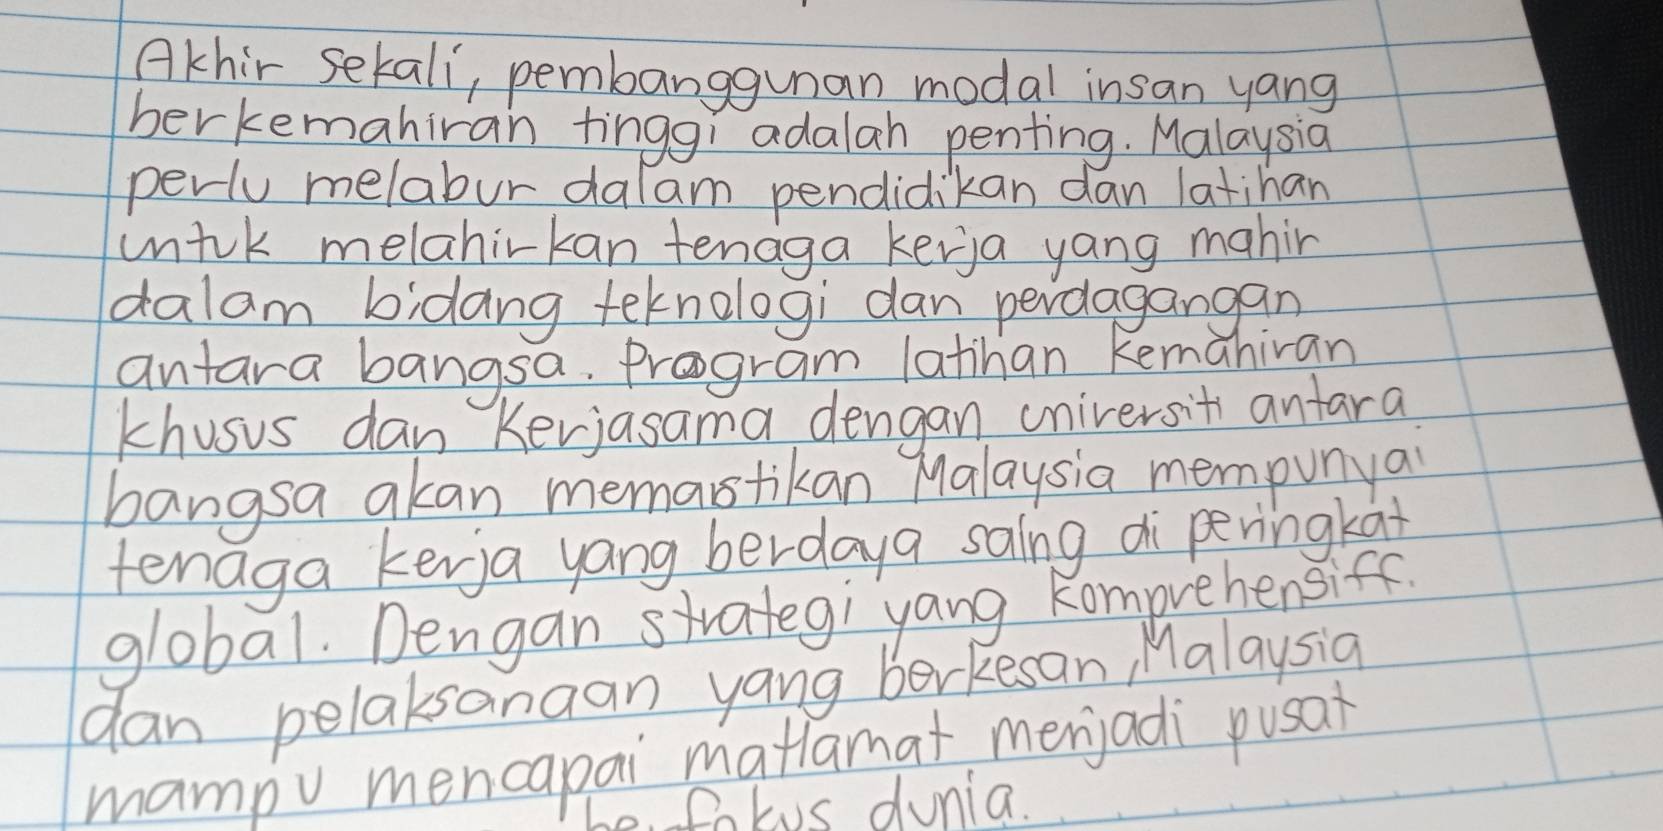 Akhir sekali, pembanggunan modal insan yang
berkemahiran tinggi adalah penting. Malaysia
perlu melabur dalam pendidikan dan latihan
untuk melahirkan tenaga kerja yang mahir
dalam bidang teknologi dan perdagangan
antara bangsa. Program latihan kemahiran
khusus dan Kerjasama dengan universiti antara
bangsa akan memastikan Malaysia mempunyai
tenaga kerja yang berdaya saing di peringkat
global. Dengan strategi yang komprehensiff.
dan pelaksanaan yang berkesan, Malaysia
mampu mencapai matlamat menjadi pusat
fokus dunia.